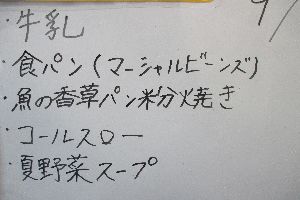 ・牛乳
・食パン(マーシャルビーンズ)
・魚の香草パン粉焼き
・コールスロー
・夏野菜スープ